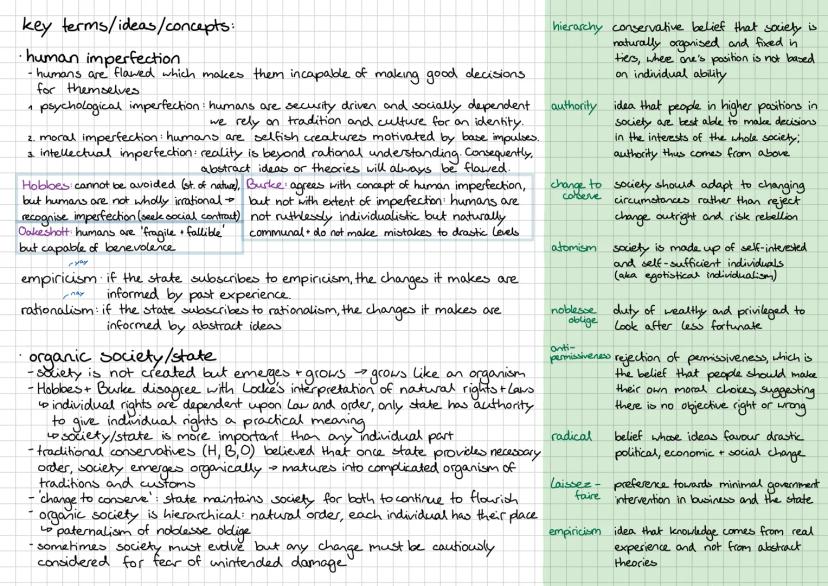 key terms/ideas/concepts:
· human imperfection
- humans are flawed which makes them incapable of making good decisions
for themselves
1. psychological imperfection: humans are security driven and socially dependent
we rely on tradition and culture for an identity.
2. moral imperfection: humans are selfish creatures motivated by base impulses.
3. intellectual imperfection: reality is beyond rational understanding. Consequently,
abstract ideas or theories will always be flawed.
Hobbes: cannot be avoided (st. of nature),
but humans are not wholly irrational →
recognise imperfection (seek social contract)
Oakeshott: humans are 'fragile + fallible'
but capable of benevolence
Burke: agrees with concept of human imperfection,
but not with extent of imperfection: humans are
not ruthlessly individualistic but naturally
communal + do not make mistakes to drastic levels
yay
empiricism: if the state subscribes to empiricism, the changes it makes are
informed by past experience.
nay
rationalism: if the state subscribes to rationalism, the changes it makes are
informed by abstract ideas
· organic society/state
- society is not created but emerges + grows → grows like an organism
- Hobbes + Burke disagree with Locke's interpretation of natural rights + laws
↳ individual rights are dependent upon law and order, only state has authority
to give individual rights a practical meaning
↳ society/state is more important than any individual part
- traditional conservatives (H, B, O) believed that once state provides necessary
order, society emerges organically → matures into complicated organism of
traditions and customs
- 'change to conserve': state maintains society for both to continue to flourish
- organic society is hierarchical: natural order, each individual has their place
↳ paternalism of noblesse oblige
- sometimes society must evolve but any change must be cautiously
considered for fear of unintended damage
hierarchy conservative belief that society is
naturally organised and fixed in
tiers, where one's position is not based
on individual ability
authority idea that people in higher positions in
society are best able to make decisions
in the interests of the whole society;
authority thus comes from above
change to society should adapt to changing
conserve circumstances rather than reject
change outright and risk rebellion
atomism society is made up of self-interested
and self-sufficient individuals
(aka egotistical individualism)
noblesse duty of wealthy and privileged to
oblige look after less fortunate
anti-
permissiveness rejection of permissiveness, which is
the belief that people should make
their own moral choices, suggesting
there is no objective right or wrong
radical belief whose ideas favour drastic
political, economic + social change
laissez- preference towards minimal government
faire intervention in business and the state
empiricism idea that knowledge comes from real
experience and not from abstract
theories